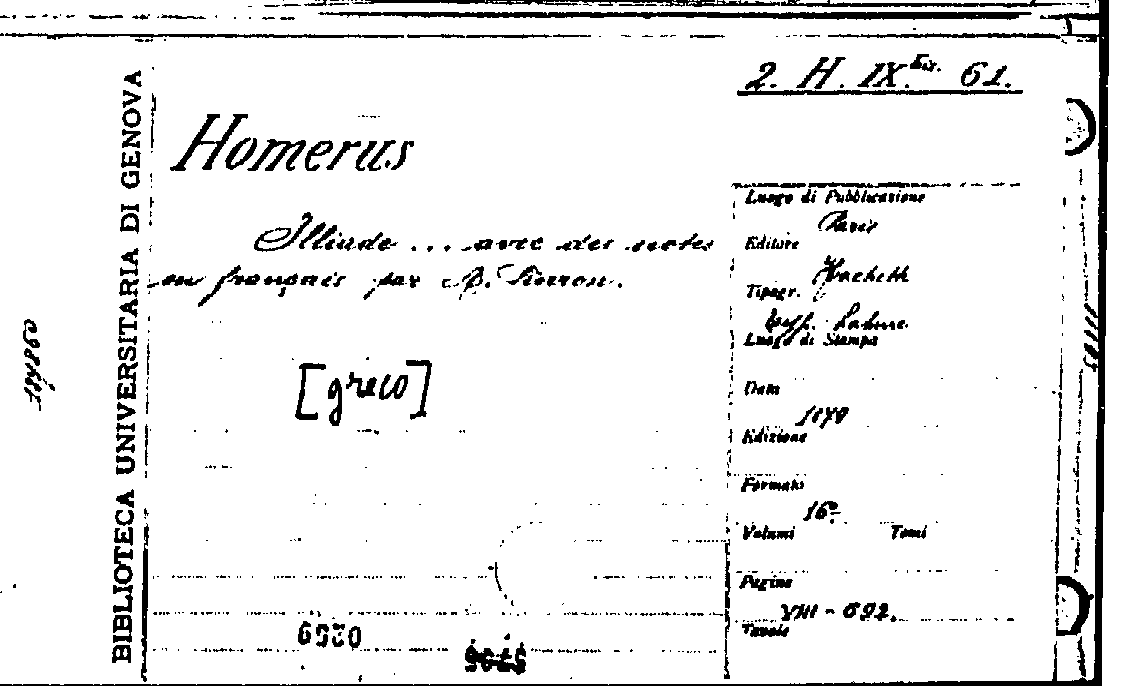 2. H. IX.Bis. 61.
Homerus
Illiade ... avec des notes
en français par A. Pierron.
[greco]
BIBLIOTECA UNIVERSITARIA DI GENOVA
Luogo di Pubblicazione
Paris
Editore
Hachette
Tipogr.
typ. Lahure
Luogo di Stampa
Data
Edizione
Formato
16º
Volumi Tomi
Pagine
VIII - 692.
Tavole